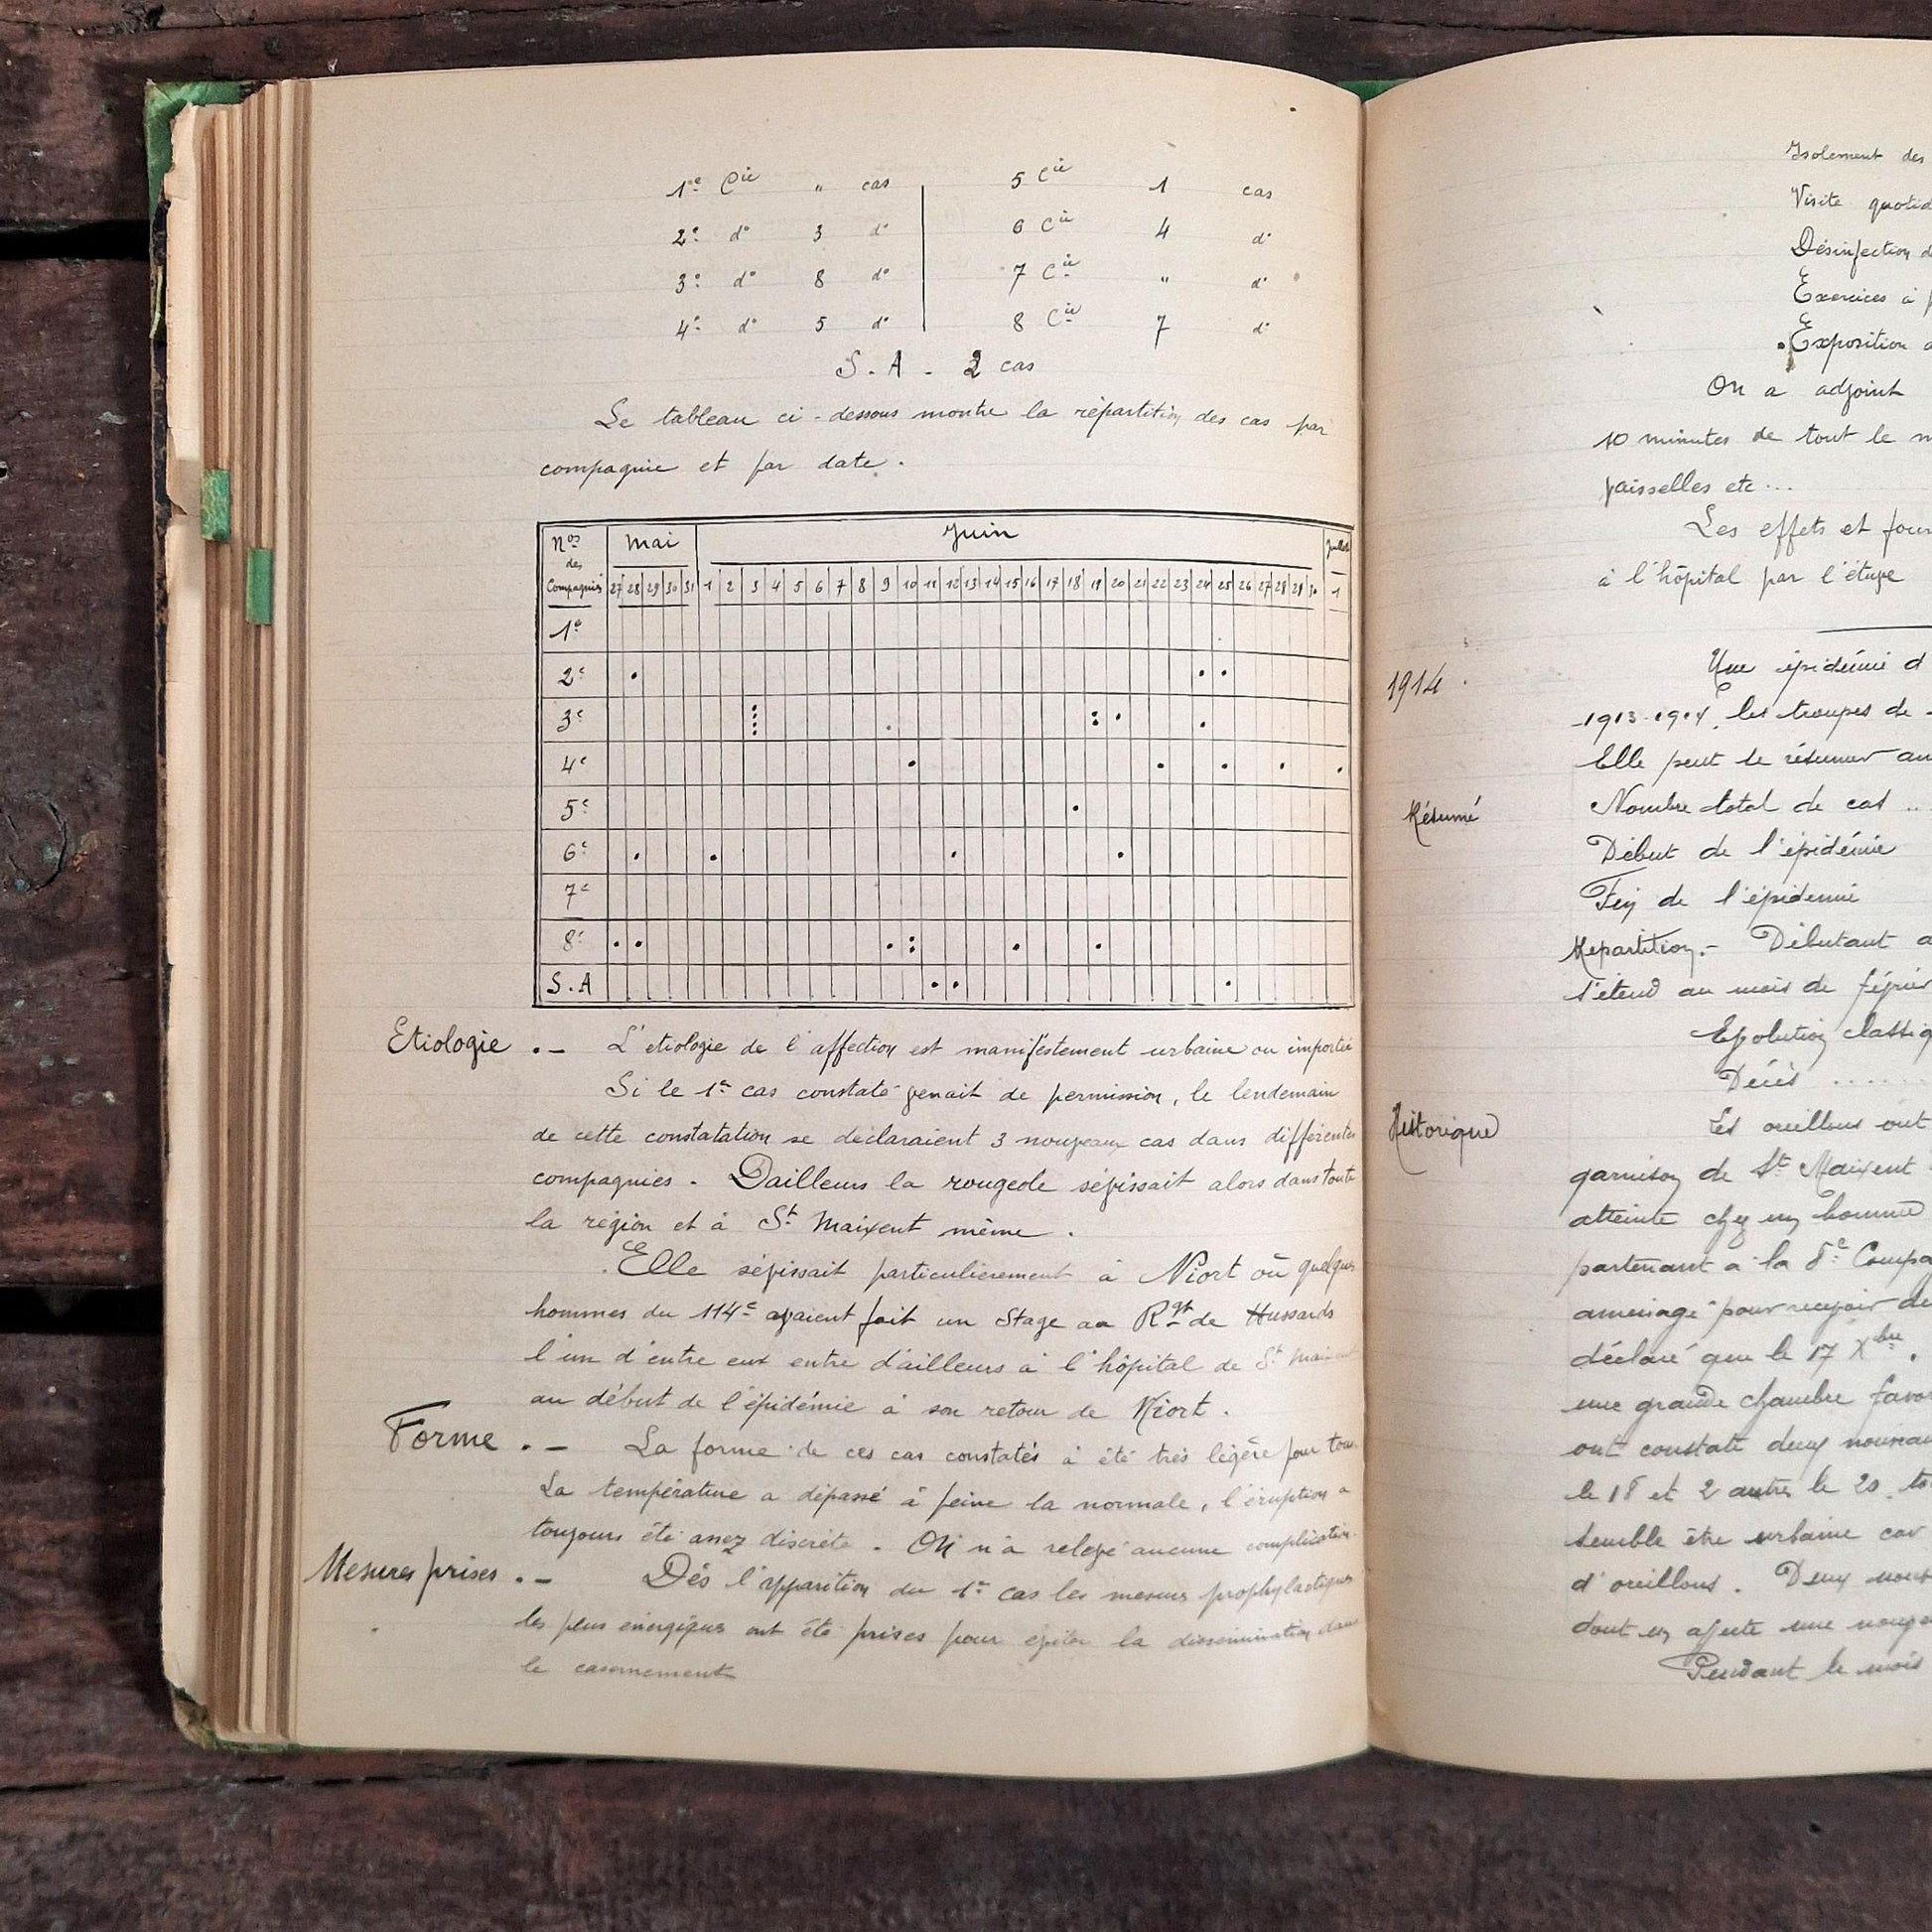 1re Cie " cas 5 Cie 1 cas
2e do 3 do 6 Cie 4 do
3e do 8 do 7 Cie " do
4e do 5 do 8 Cie 7 do
S.A - 2 cas
Le tableau ci-dessous montre la répartition des cas par
compagnie et par date.
Nos des Compagnies
Mai Juin Juillet
27 28 29 30 31 1 2 3 4 5 6 7 8 9 10 11 12 13 14 15 16 17 18 19 20 21 22 23 24 25 26 27 28 29 30 1
1e
2e
3e
4e
5e
6e
7e
8e
S.A
Etiologie .- L'etiologie de l'affection est manifestement urbaine ou importée
Si le 1er cas constaté venait de permission, le lendemain
de cette constatation se déclaraient 3 nouveaux cas dans différentes
compagnies. Dailleurs la rougeole sévissait alors dans toute
la région et à St Maixent même.
Elle sévissait particulièrement à Niort où quelques
hommes du 114e avaient fait un Stage au Rgt de Hussards
l'un d'entre eux entre d'ailleurs à l'hôpital de St Maixent
au début de l'épidémie à son retour de Niort.
Forme .- La forme de ces cas constatés à été très légère pour tous.
La température a dépassé à peine la normale, l'éruption a
toujours été assez discrète. On n'a relevé aucune complication.
Mesures prises .- Dés l'apparition du 1er cas les mesures prophylactiques
les plus énergiques ont été prises pour éviter la dissémination dans
le casernement
Isolement des
Visite
Désinfection
Exercices à
Exposition
On a adjoint
10 minutes de tout le
vaisselles etc...
Les effets et
à l'hôpital par l'étuve
1914. Une épidémie d
1913-1914, les troupes de
Elle peut se résumer
Résumé Nombre total de cas ..
Début de l'épidémie
Fin de l'épidémie
Repartition.- Débutant
s'étend au mois de
Evolution
Décès .....
Historique Les oreillons ont
garnison de St Maixent
atteinte chez un homme
partenant à la 8e
amenagé pour recevoir
déclaré que le 17 Xbre.
une grande chambre
ont constaté deux
le 18 et 2 autres le 20.
semble être urbaine car
d'oreillons. Deux
dont un affecte une
Pendant le mois